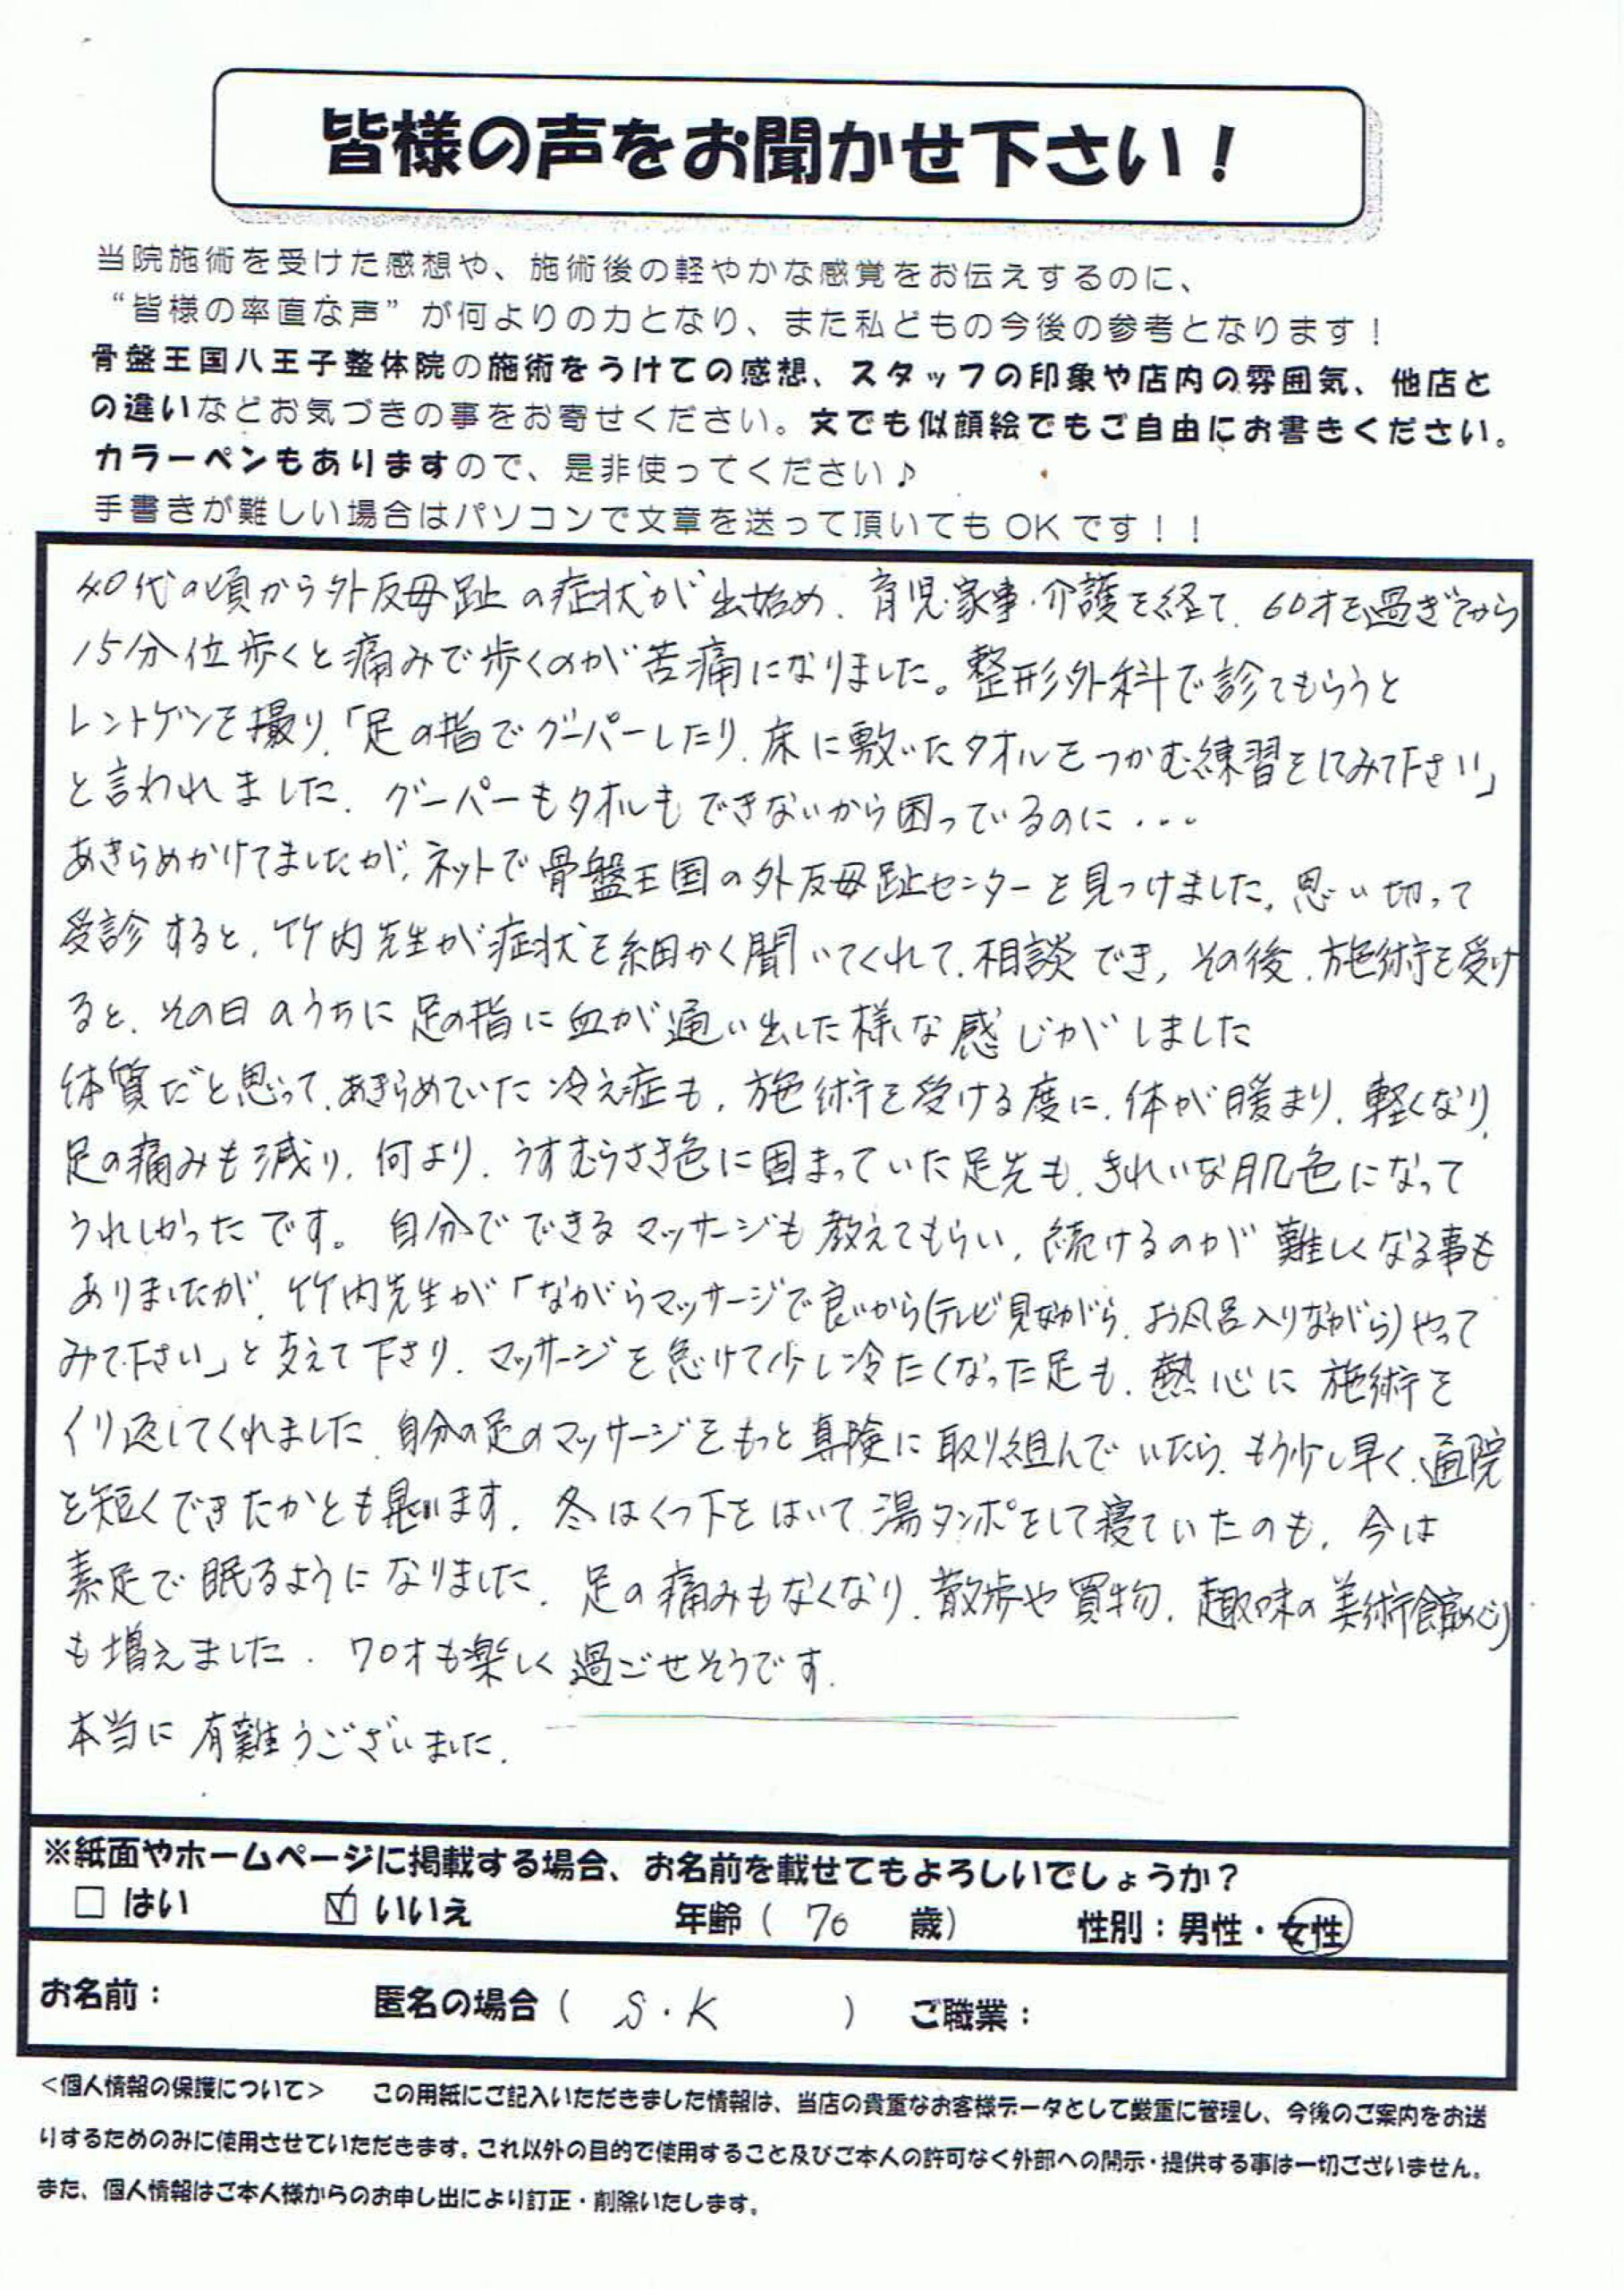 皆様の声をお聞かせ下さい！
当院施術を受けた感想や、施術後の軽やかな感覚をお伝えするのに、
“皆様の率直な声”が何よりの力となり、また私どもの今後の参考となります！
骨盤王国八王子整体院の施術をうけての感想、スタッフの印象や店内の雰囲気、他店と
の違いなどお気づきの事をお寄せください。文でも似顔絵でもご自由にお書きください。
カラーペンもありますので、是非使ってください♪
手書きが難しい場合はパソコンで文章を送って頂いてもOKです！！
40代の頃から外反母趾の症状が出始め、育児・家事・介護を経て、60才を過ぎてから
15分位歩くと痛みで歩くのが苦痛になりました。整形外科で診てもらうと
レントゲンを撮り、「足の指でグーパーしたり、床に敷いたタオルをつかむ練習をしてみて下さい」
と言われました。グーパーもタオルもできないから困っているのに・・・
あきらめかけてましたが、ネットで骨盤王国の外反母趾センターを見つけました。思い切って
受診すると、竹内先生が症状を細かく聞いてくれて、相談でき、その後、施術を受け
ると、その日のうちに足の指に血が通い出した様な感じがしました
体質だと思って、あきらめていた冷え症も、施術を受ける度に、体が暖まり、軽くなり、
足の痛みも減り、何より、うすむらさき色に固まっていた足先も、きれいな肌色になって
うれしかったです。自分でできるマッサージも教えてもらい、続けるのが難しくなる事も
ありましたが、竹内先生が「ながらマッサージで良いから(テレビ見ながら、お風呂入りながら)やって
みて下さい」と支えて下さり、マッサージを怠けて少し冷たくなった足も、熱心に施術を
くり返してくれました。自分の足のマッサージをもっと真険に取り組んでいたら、もう少し早く、通院
を短くできたかとも思います。冬はくつ下をはいて、湯タンポをして寝ていたのも、今は
素足で眠るようになりました。足の痛みもなくなり、散歩や買物、趣味の美術館めぐり
も増えました。70才も楽しく過ごせそうです。
本当に有難うございました。
※紙面やホームページに掲載する場合、お名前を載せてもよろしいでしょうか？
□ はい ☑ いいえ 年齢（ 70 歳） 性別：男性・女性
お名前： 匿名の場合（ S.K ） ご職業：
＜個人情報の保護について＞ この用紙にご記入いただきました情報は、当店の貴重なお客様データとして厳重に管理し、今後のご案内をお送
りするためのみに使用させていただきます。これ以外の目的で使用すること及びご本人の許可なく外部への開示・提供する事は一切ございません。
また、個人情報はご本人様からのお申し出により訂正・削除いたします。